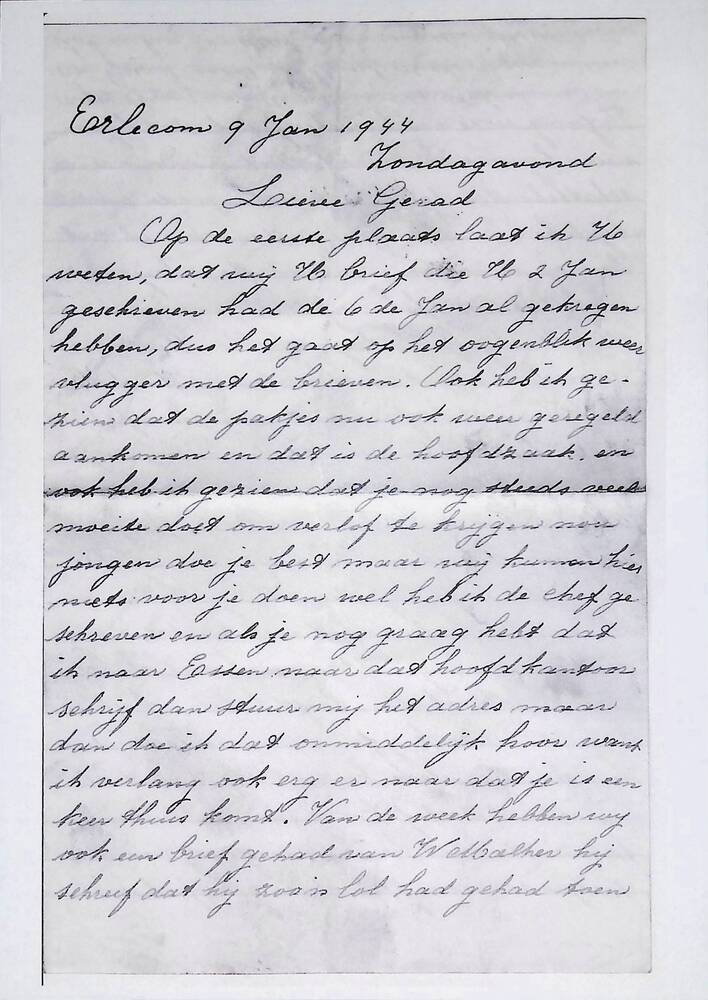 Erlecom 9 Jan 1944
Zondagavond
Lieve Gerad
Op de eerste plaats laat ik U
weten, dat wij U brief die U 2 Jan
geschieven had de 6 de Jan al gekregen
hebben, dus het gaat op het oogenblik weer
vlugger met de brieven. Ook heb ik ge-
zien dat de pakjes nu ook weer geregeld
aankomen en dat is de hoofdzaak. en
ook heb ik gezien dat je nog steeds veel
moeite doet om verlof te krijgen nou
jongen doe je best maar wij kunnen hier
niets voor je doen wel heb ik de chef ge
schreven en als je nog graag hebt dat
ik naar Essen naar dat hoofdkantoor
schrijf dan stuur mij het adres maar
dan doe ik dat onmiddelijk hoor want
ik verlang ook erg er naar dat je is een
keer thuis komt. Van de week hebben wij
ook een brief gehad van hij
schreef dat hij zoo'n lol had gehad toen